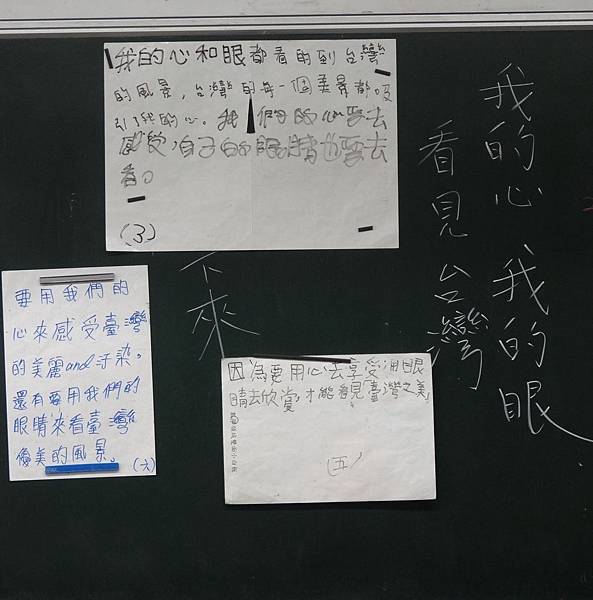 我的心 我的眼
看見台灣
下來
我的心和眼都看的到台灣
的風景，台灣的每一個美景都吸
引了我的心。我們的心要去
感受，自己的眼睛也要去
看。
(3)
因為要用心去享受，用眼
睛去欣賞，才能看見臺灣之美。
(五)
要用我們的
心來感受臺灣
的美麗and汙染。
還有要用我們的
眼睛來看臺灣
優美的風景。
(六)